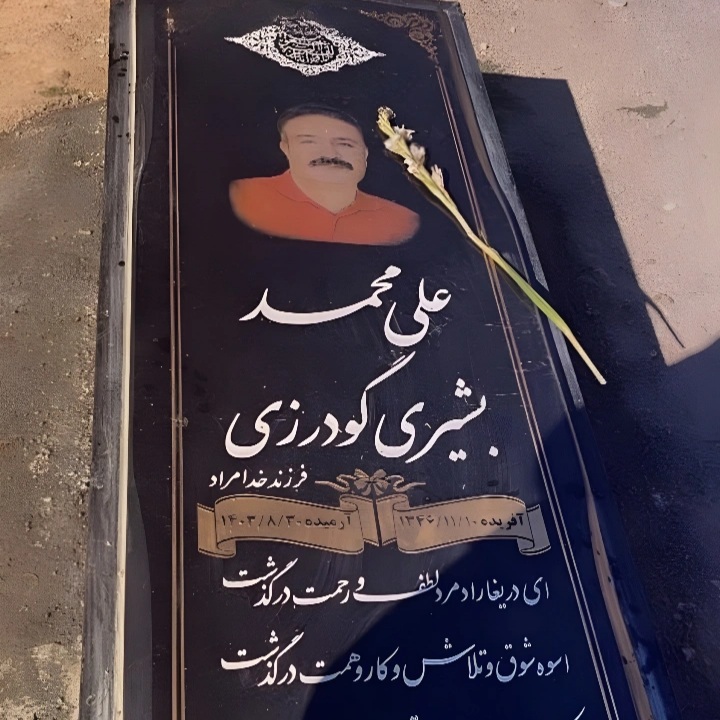 علی محمد
بشیری گودرزی
فرزند خدامراد
آفریده ۱۳۴۶/۱۱/۱۰ آرمیده ۱۴۰۳/۸/۳۰
ای دریغا رادمرد لطف و رحمت درگذشت
اسوه شوق و تلاش و کار و همت درگذشت